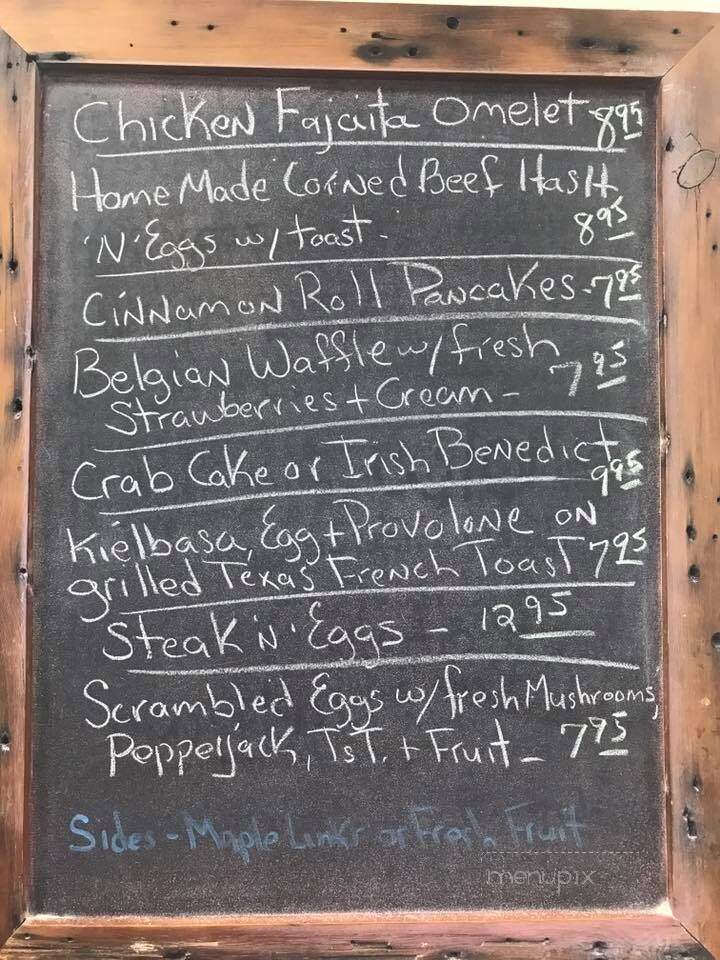 Chicken Fajaita Omelet 8.95
Home Made Corned Beef Hash
'N' Eggs w/ toast - 8.95
Cinnamon Roll Pancakes - 7.95
Belgian Waffle w/ fresh
Strawberries + Cream - 7.95
Crab Cake or Irish Benedict 9.95
Kielbasa, Egg + Provolone on
grilled Texas French Toast 7.95
Steak 'N' Eggs - 12.95
Scrambled Eggs w/ fresh Mushrooms,
Pepperjack, TsT. + Fruit - 7.95
Sides - Maple Links or Fresh Fruit
menupix